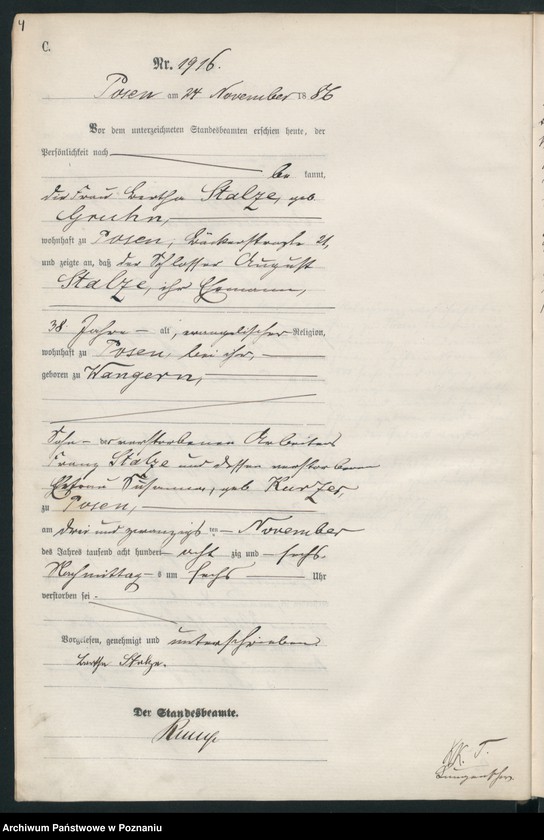 4
C.
Nr. 1916.
Posen am 24 November 1886
Vor dem unterzeichneten Standesbeamten erschien heute, der
Persönlichkeit nach
be kannt,
die Frau Bertha Stalze, geb.
Gruhn,
wohnhaft zu Posen, Bäckerstraße 21,
und zeigte an, daß der Schlosser August
Stalze, ihr Ehemann,
38 Jahre alt, evangelischer Religion,
wohnhaft zu Posen, bei ihr,
geboren zu Wangern,
Sohn des verstorbenen Arbeiters
Franz Stalze und dessen verstorbenen
Ehefrau Susanna, geb. Kurzer,
zu Posen,
am drei und zwanzigsten November
des Jahres tausend acht hundert acht zig und sechs
Nachmittags um sechs Uhr
verstorben sei
Vorgelesen, genehmigt und unterschrieben
Bertha Stalze.
Der Standesbeamte.
K. T.
Archiwum Państwowe w Poznaniu